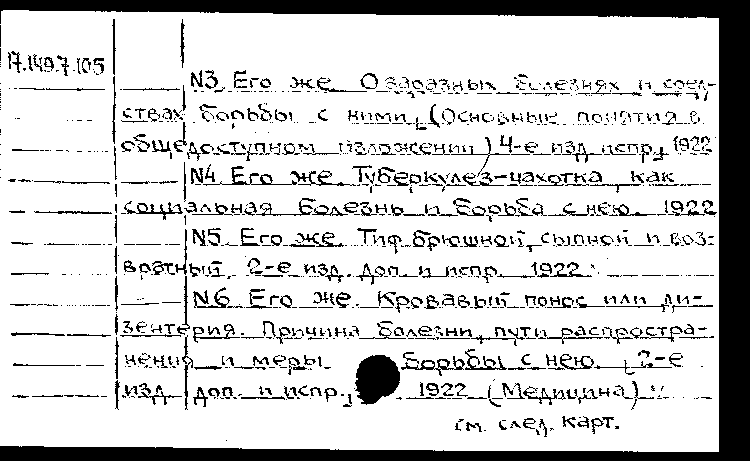 17.149.7.105
N3. Его же. О заразных болезнях и сред-
ствах борьбы с ними. (Основные понятия в
общедоступном изложении) 4-е изд. испр., 1922
N4. Его же. Туберкулез-чахотка, как
социальная болезнь и борьба с нею. 1922
N5. Его же. Тиф брюшной, сыпной и воз-
вратный. 2-е изд. доп. и испр. 1922.
N6. Его же. Кровавый понос или ди-
зентерия. Причина болезни, пути распростра-
нения и меры борьбы с нею. 2-е
изд. доп. и испр., 1922 (Медицина)
см. след. карт.